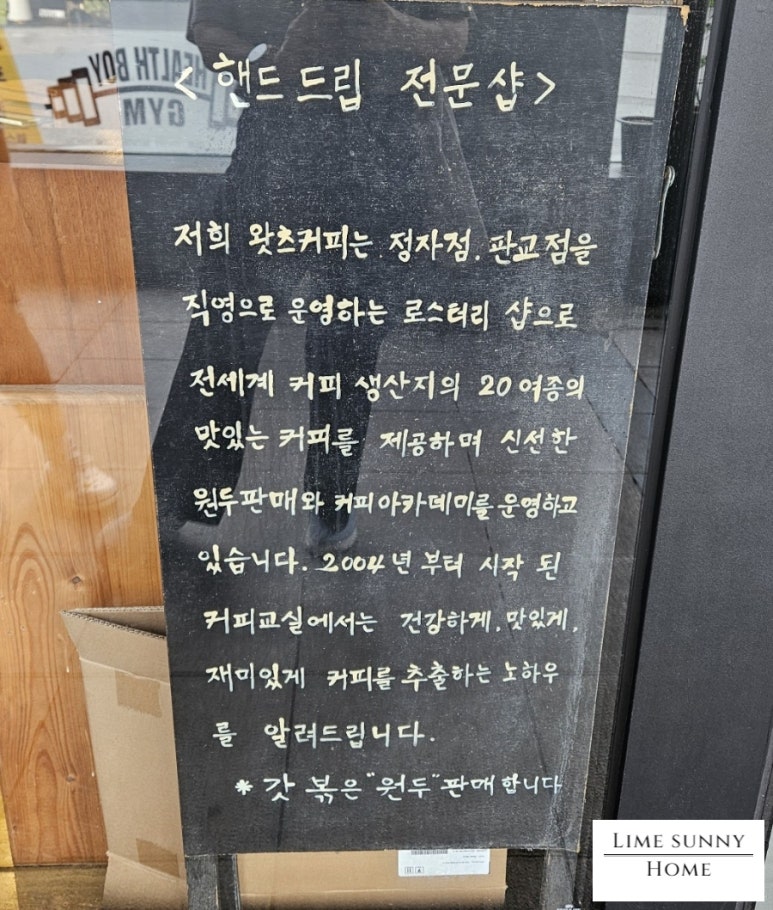 HEALTH BOY
GYM
<핸드드립 전문샵>
저희 왓츠커피는 정자점. 판교점을
직영으로 운영하는 로스터리 샵으로
전세계 커피 생산지의 20여종의
맛있는 커피를 제공하며 신선한
원두판매와 커피아카데미를 운영하고
있습니다. 2004년 부터 시작 된
커피교실에서는 건강하게, 맛있게,
재미있게 커피를 추출하는 노하우
를 알려드립니다.
* 갓 볶은 "원두" 판매합니다
LIME SUNNY
HOME